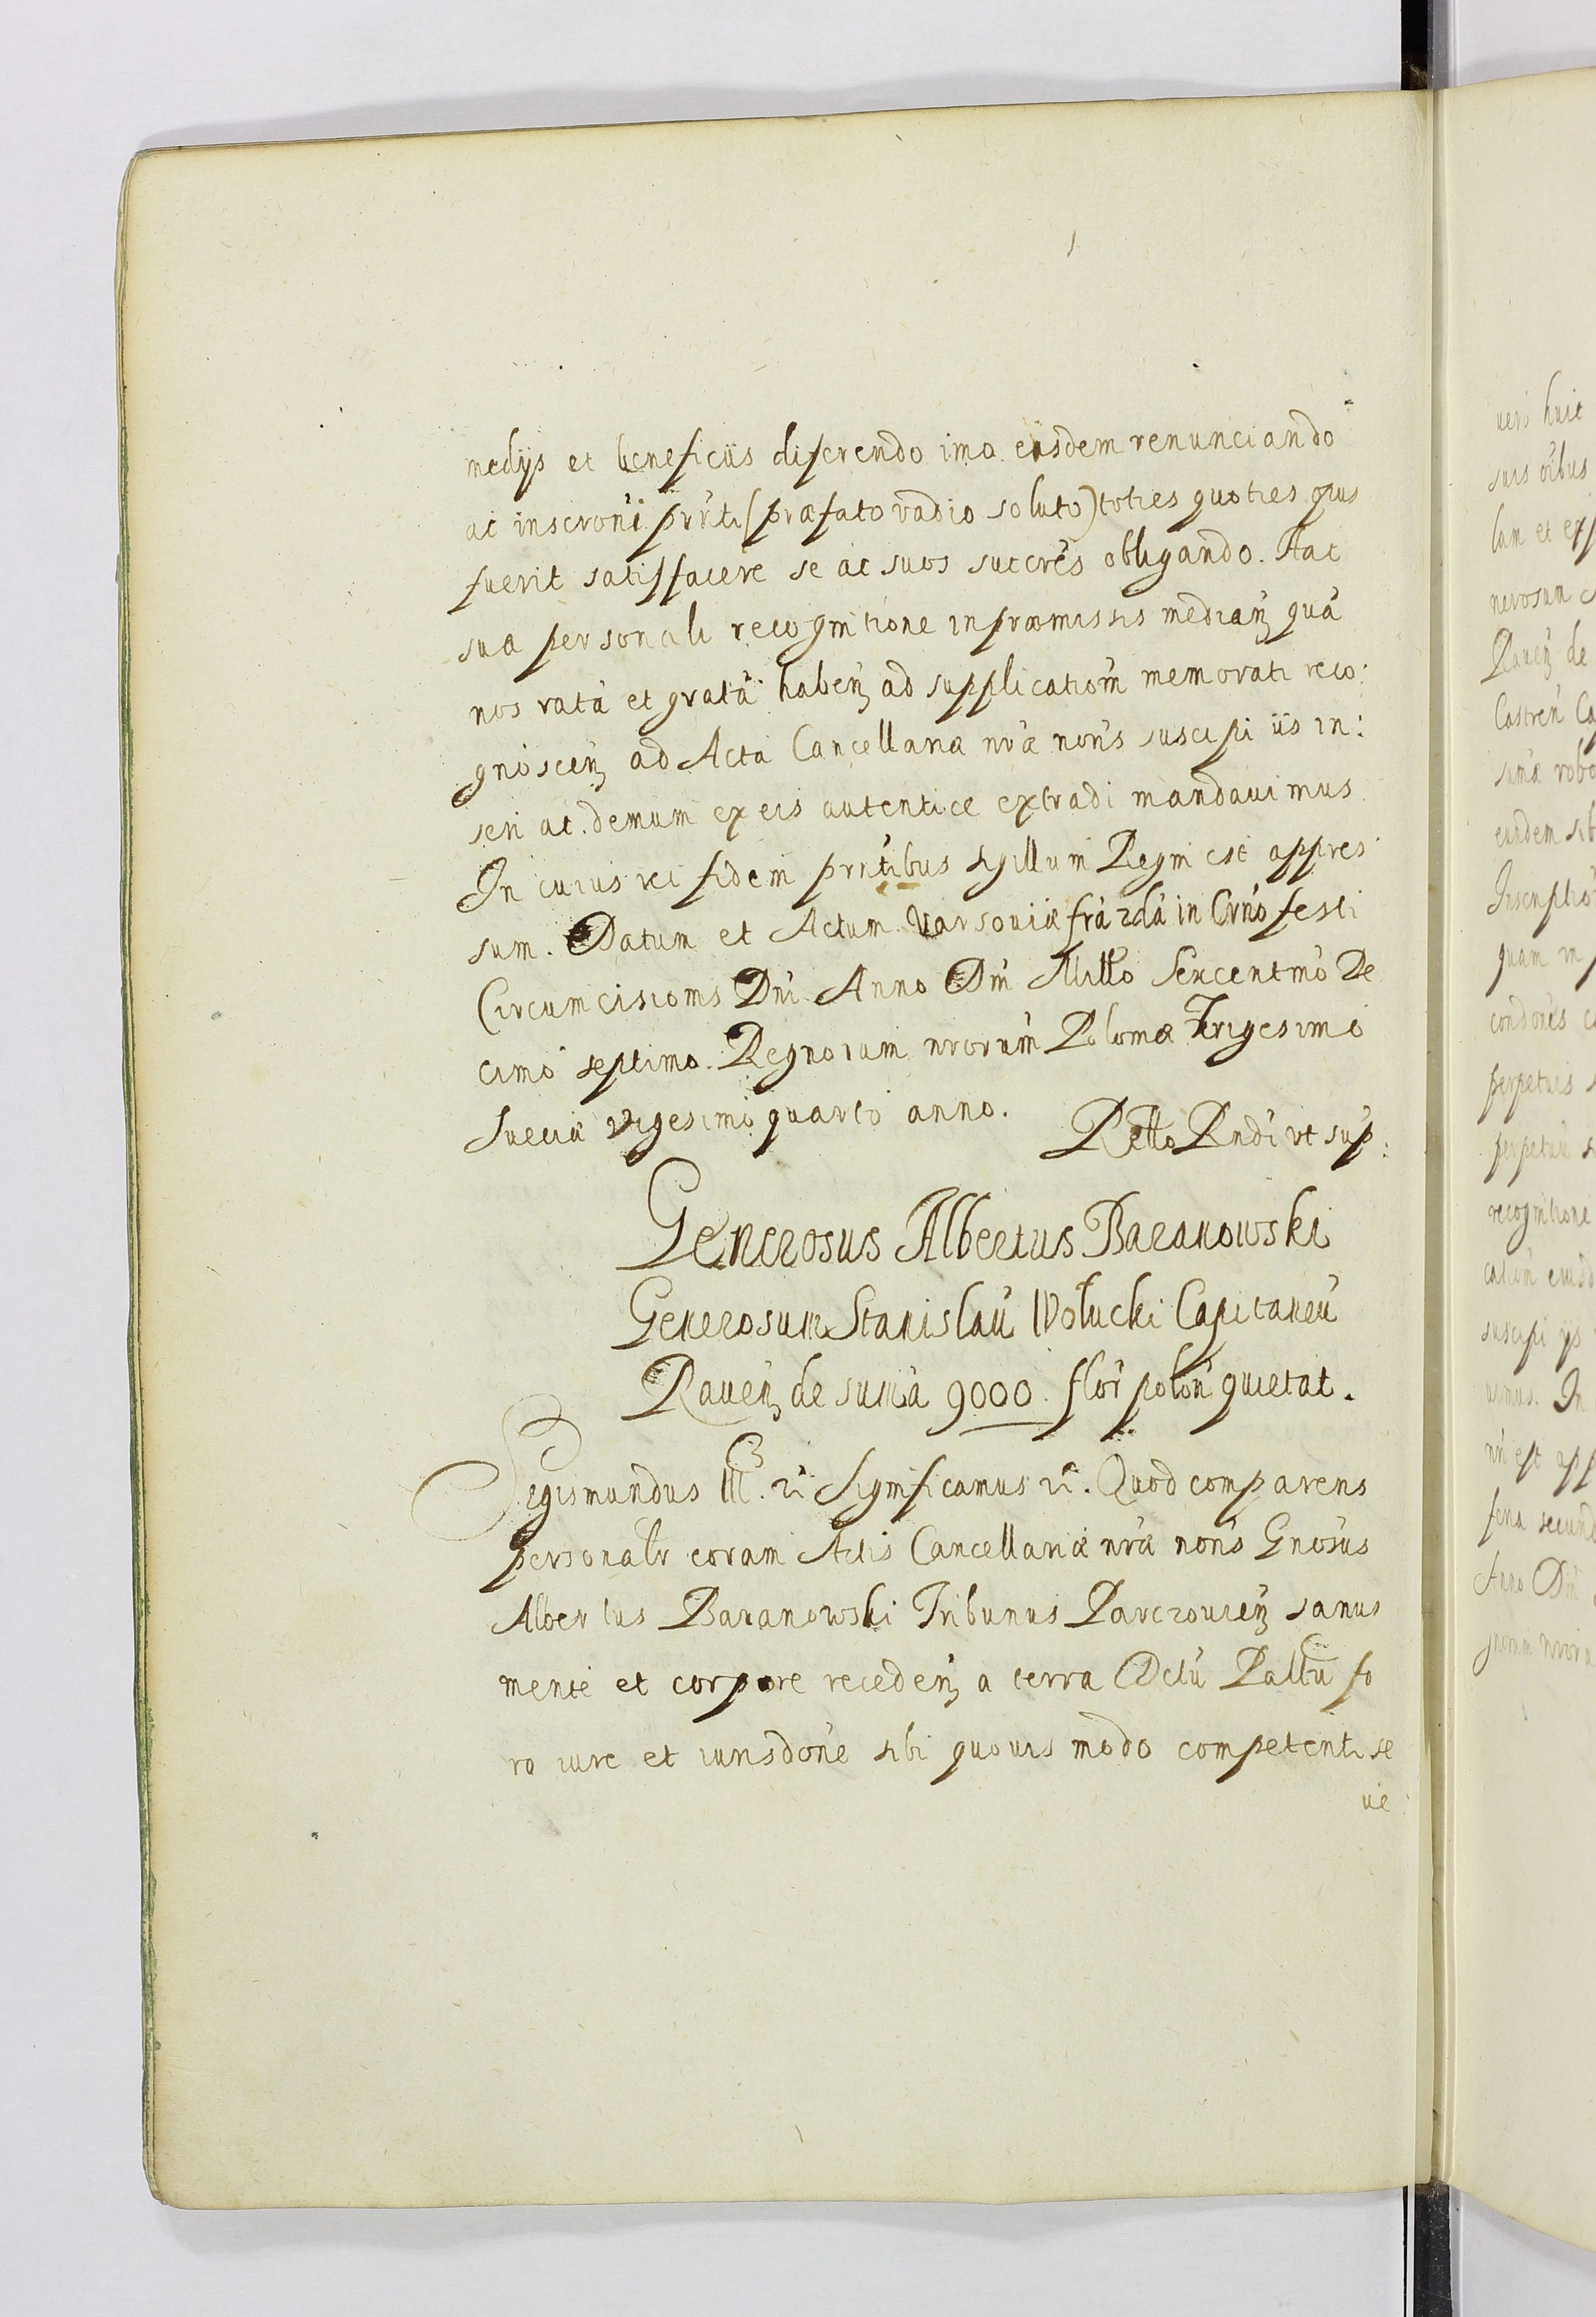 medÿs et beneficiis diferendo imo eisdem renunciando
ac inscroni prñti (præfato vadio soluto) toties quoties opus
fuerit satisfacere se ac suos succrés obligando. Hac
sua personali recognitione in præmissis medianʒ quá
nos ratá et gratá habenʒ ad supplicatiom̃ memorati reco:
gnoscenʒ ad Acta Cancellariæ nrá nons suscipi iis in:
seri ac demum ex eis autentice extradi mandauimus
In cuius rei fidem prñtibus sigillum Regni est appres
sum. Datum et Actum Varsouiæ frá 2dá in Crñó festi
Circumcisionis Dni Anno Dni Millo Sexcentmó De
cimo septimo. Regnorum nrorum Poloniæ Trigesimo
Sueciæ vigesimo quarto anno.
Retto Rndi vt sup:
Generosus Albertus Baranowski
Generosum Stanislaú Wołucki Capitaneú
Rauenʒ de sum̃a 9000 flor̃ polon̄ quietat.
Sigismundus III. rc̃ Significamus rc̃. Quod comparens
personalr coram Actis Cancellariæ nrá nons Gnosus
Albertus Baranowski Tribunus Parczouienʒ sanus
mente et corpore recedenʒ a terra Dctú Palttu fo
ro iure et iurisdoné sibi quouis modo competenti se
ue
ueri huic
suis oíbus
lam et exp
nerosum
Rauenʒ de
Castren Ca
sum̃a robo
eundem sib
Inscriptio
quam in
condonés
perpetuis
perpetuú
recognitione
suscipi ÿs
uimus. In
ni est app
feria secund
Anno Dni
gnorum nrorū